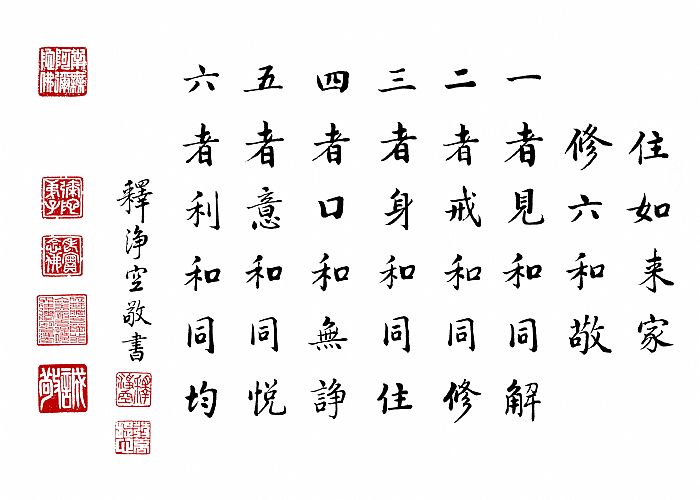 住如来家
修六和敬
一者見和同解
二者戒和同修
三者身和同住
四者口和無諍
五者意和同悦
六者利和同均
釋淨空敬書
釋淨空
南無阿彌陀佛
老實念佛
誠敬